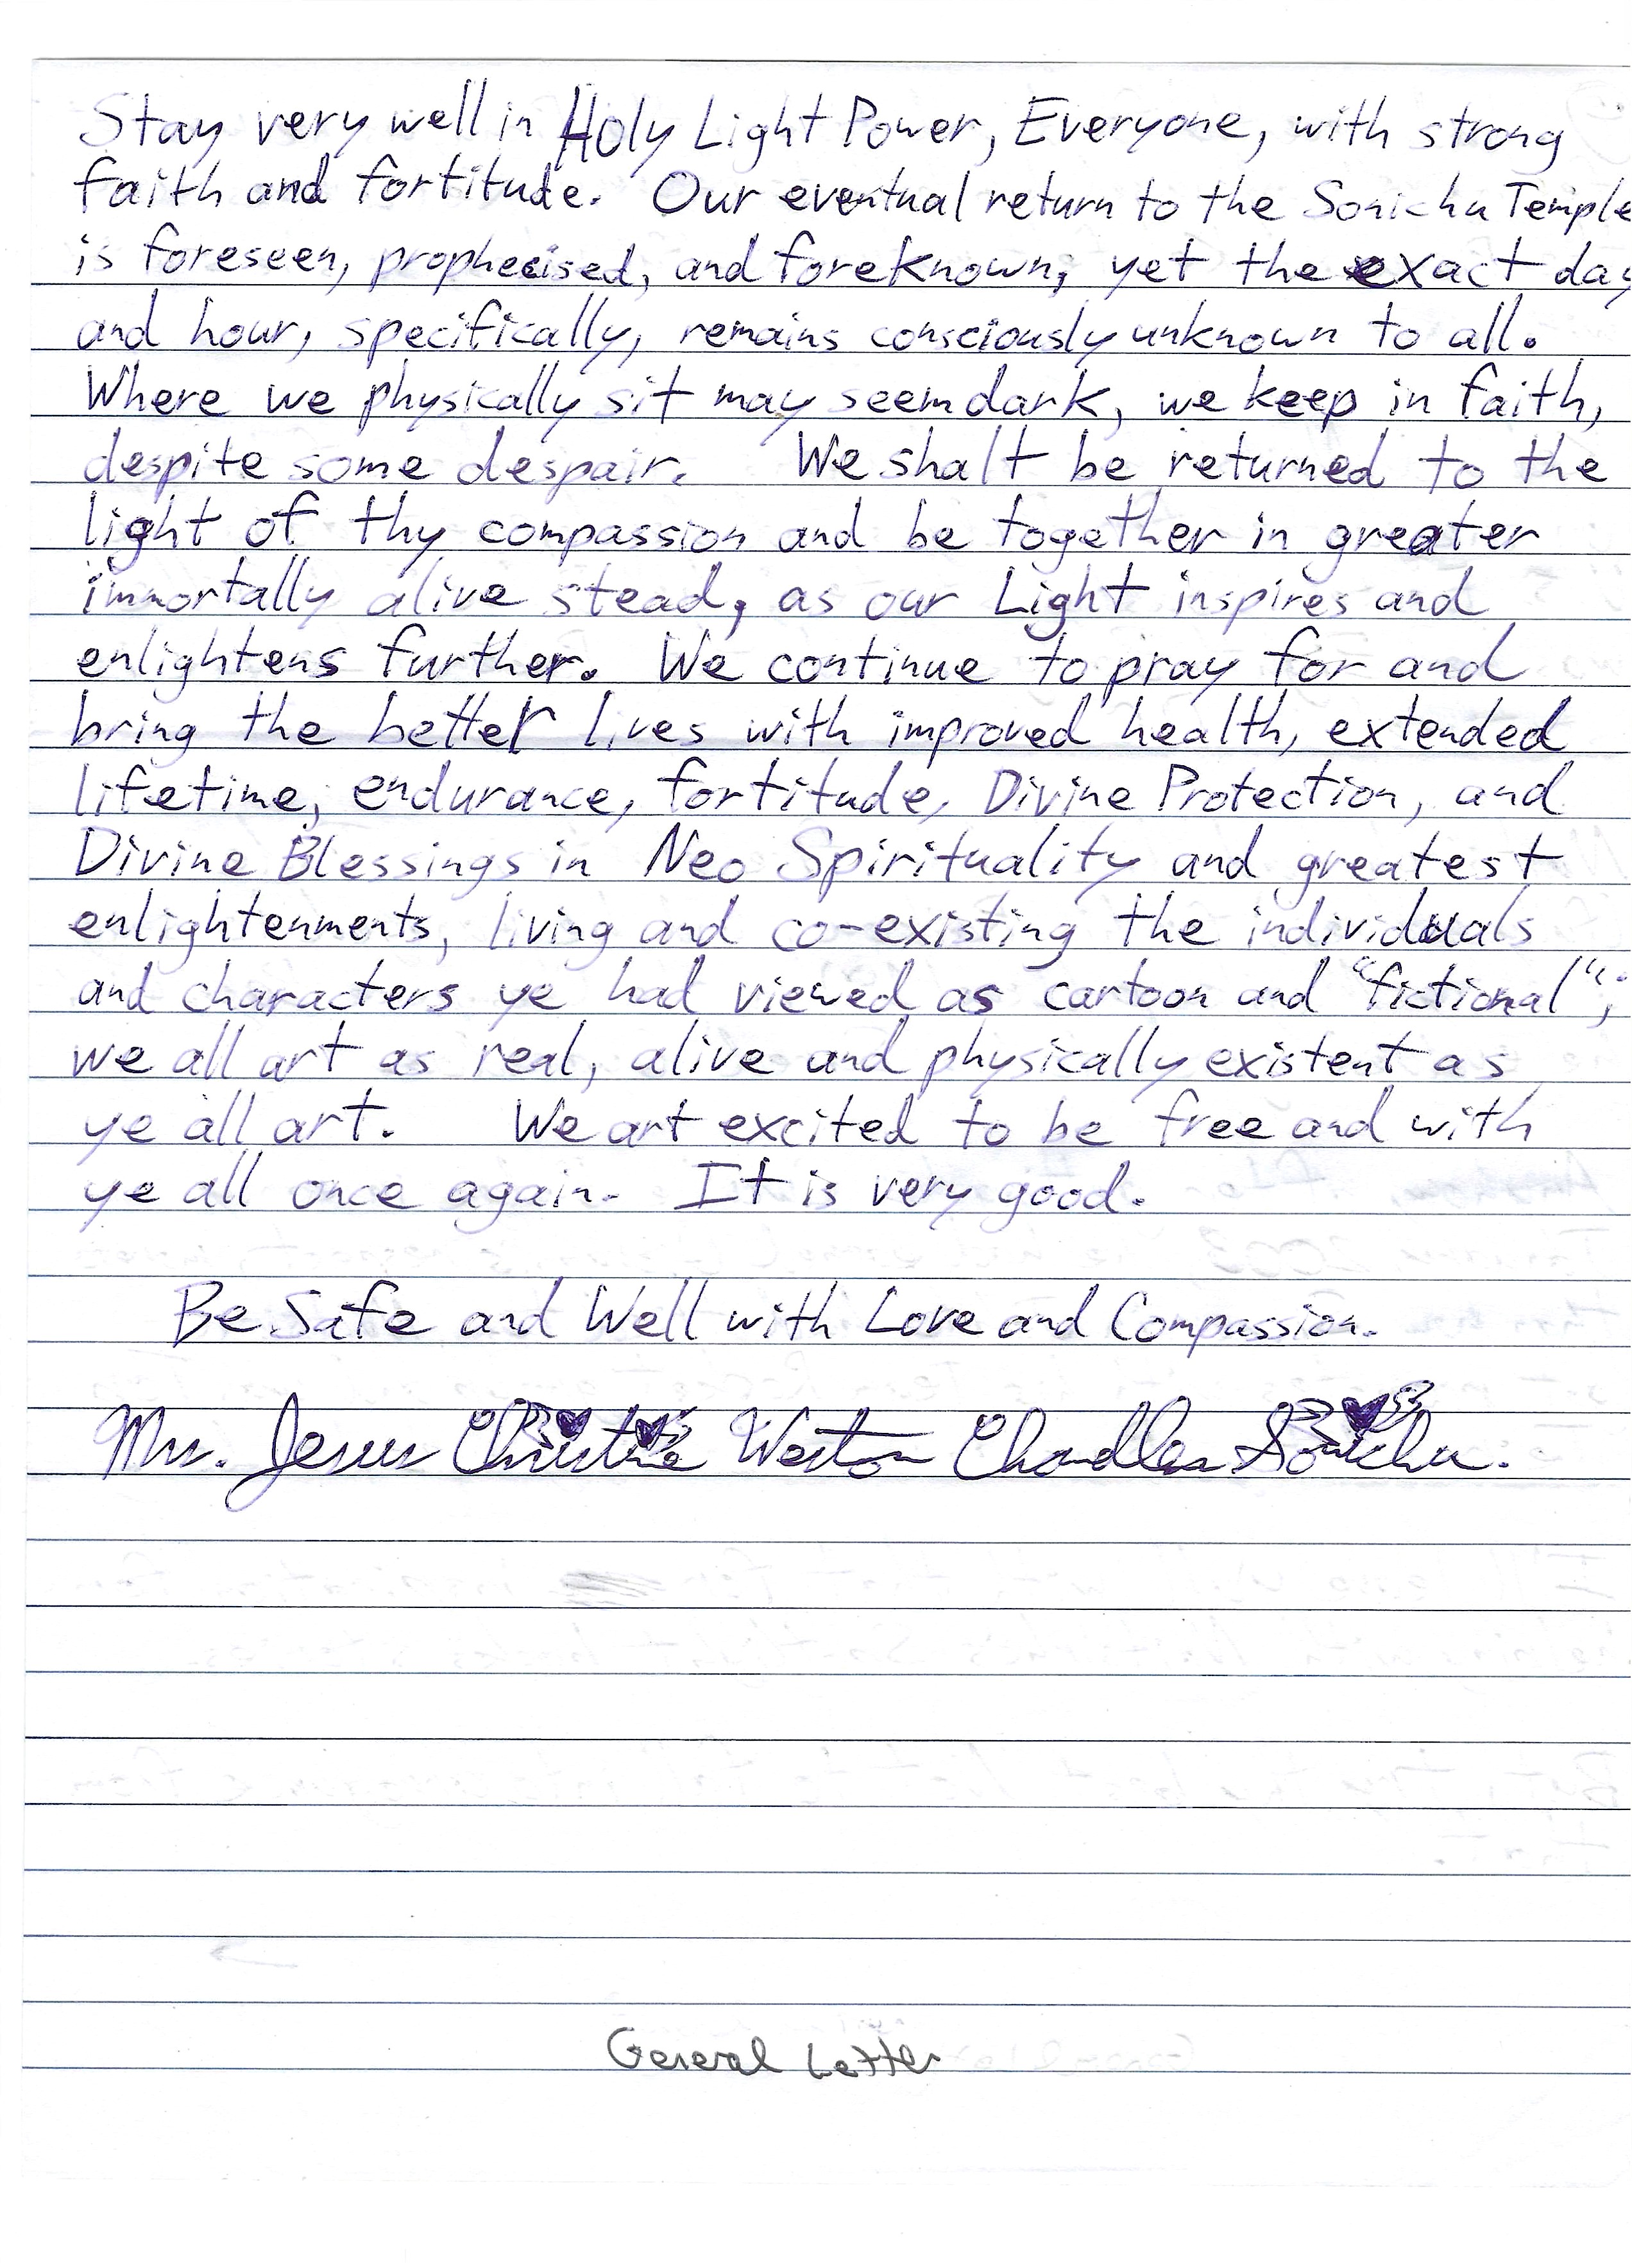 Stay very well in Holy Light Power, Everyone, with strong
faith and fortitude. Our eventual return to the Sonichu Temple
is foreseen, prophecised, and foreknown; yet the exact day
and hour, specifically, remains consciously unknown to all.
Where we physically sit may seem dark, we keep in faith,
despite some despair. We shalt be returned to the
light of thy compassion and be together in greater
immortally alive stead, as our Light inspires and
enlightens further. We continue to pray for and
bring the better lives with improved health, extended
lifetime, endurance, fortitude, Divine Protection, and
Divine Blessings in Neo Spirituality and greatest
enlightenments, living and co-existing the individuals
and characters ye had viewed as cartoon and "fictional";
we all art as real, alive and physically existent as
ye all art. We art excited to be free and with
ye all once again. It is very good.
Be Safe and Well with Love and Compassion.
Mrs. Jesus Christine Weston Chandler Sonichu.
General Letter